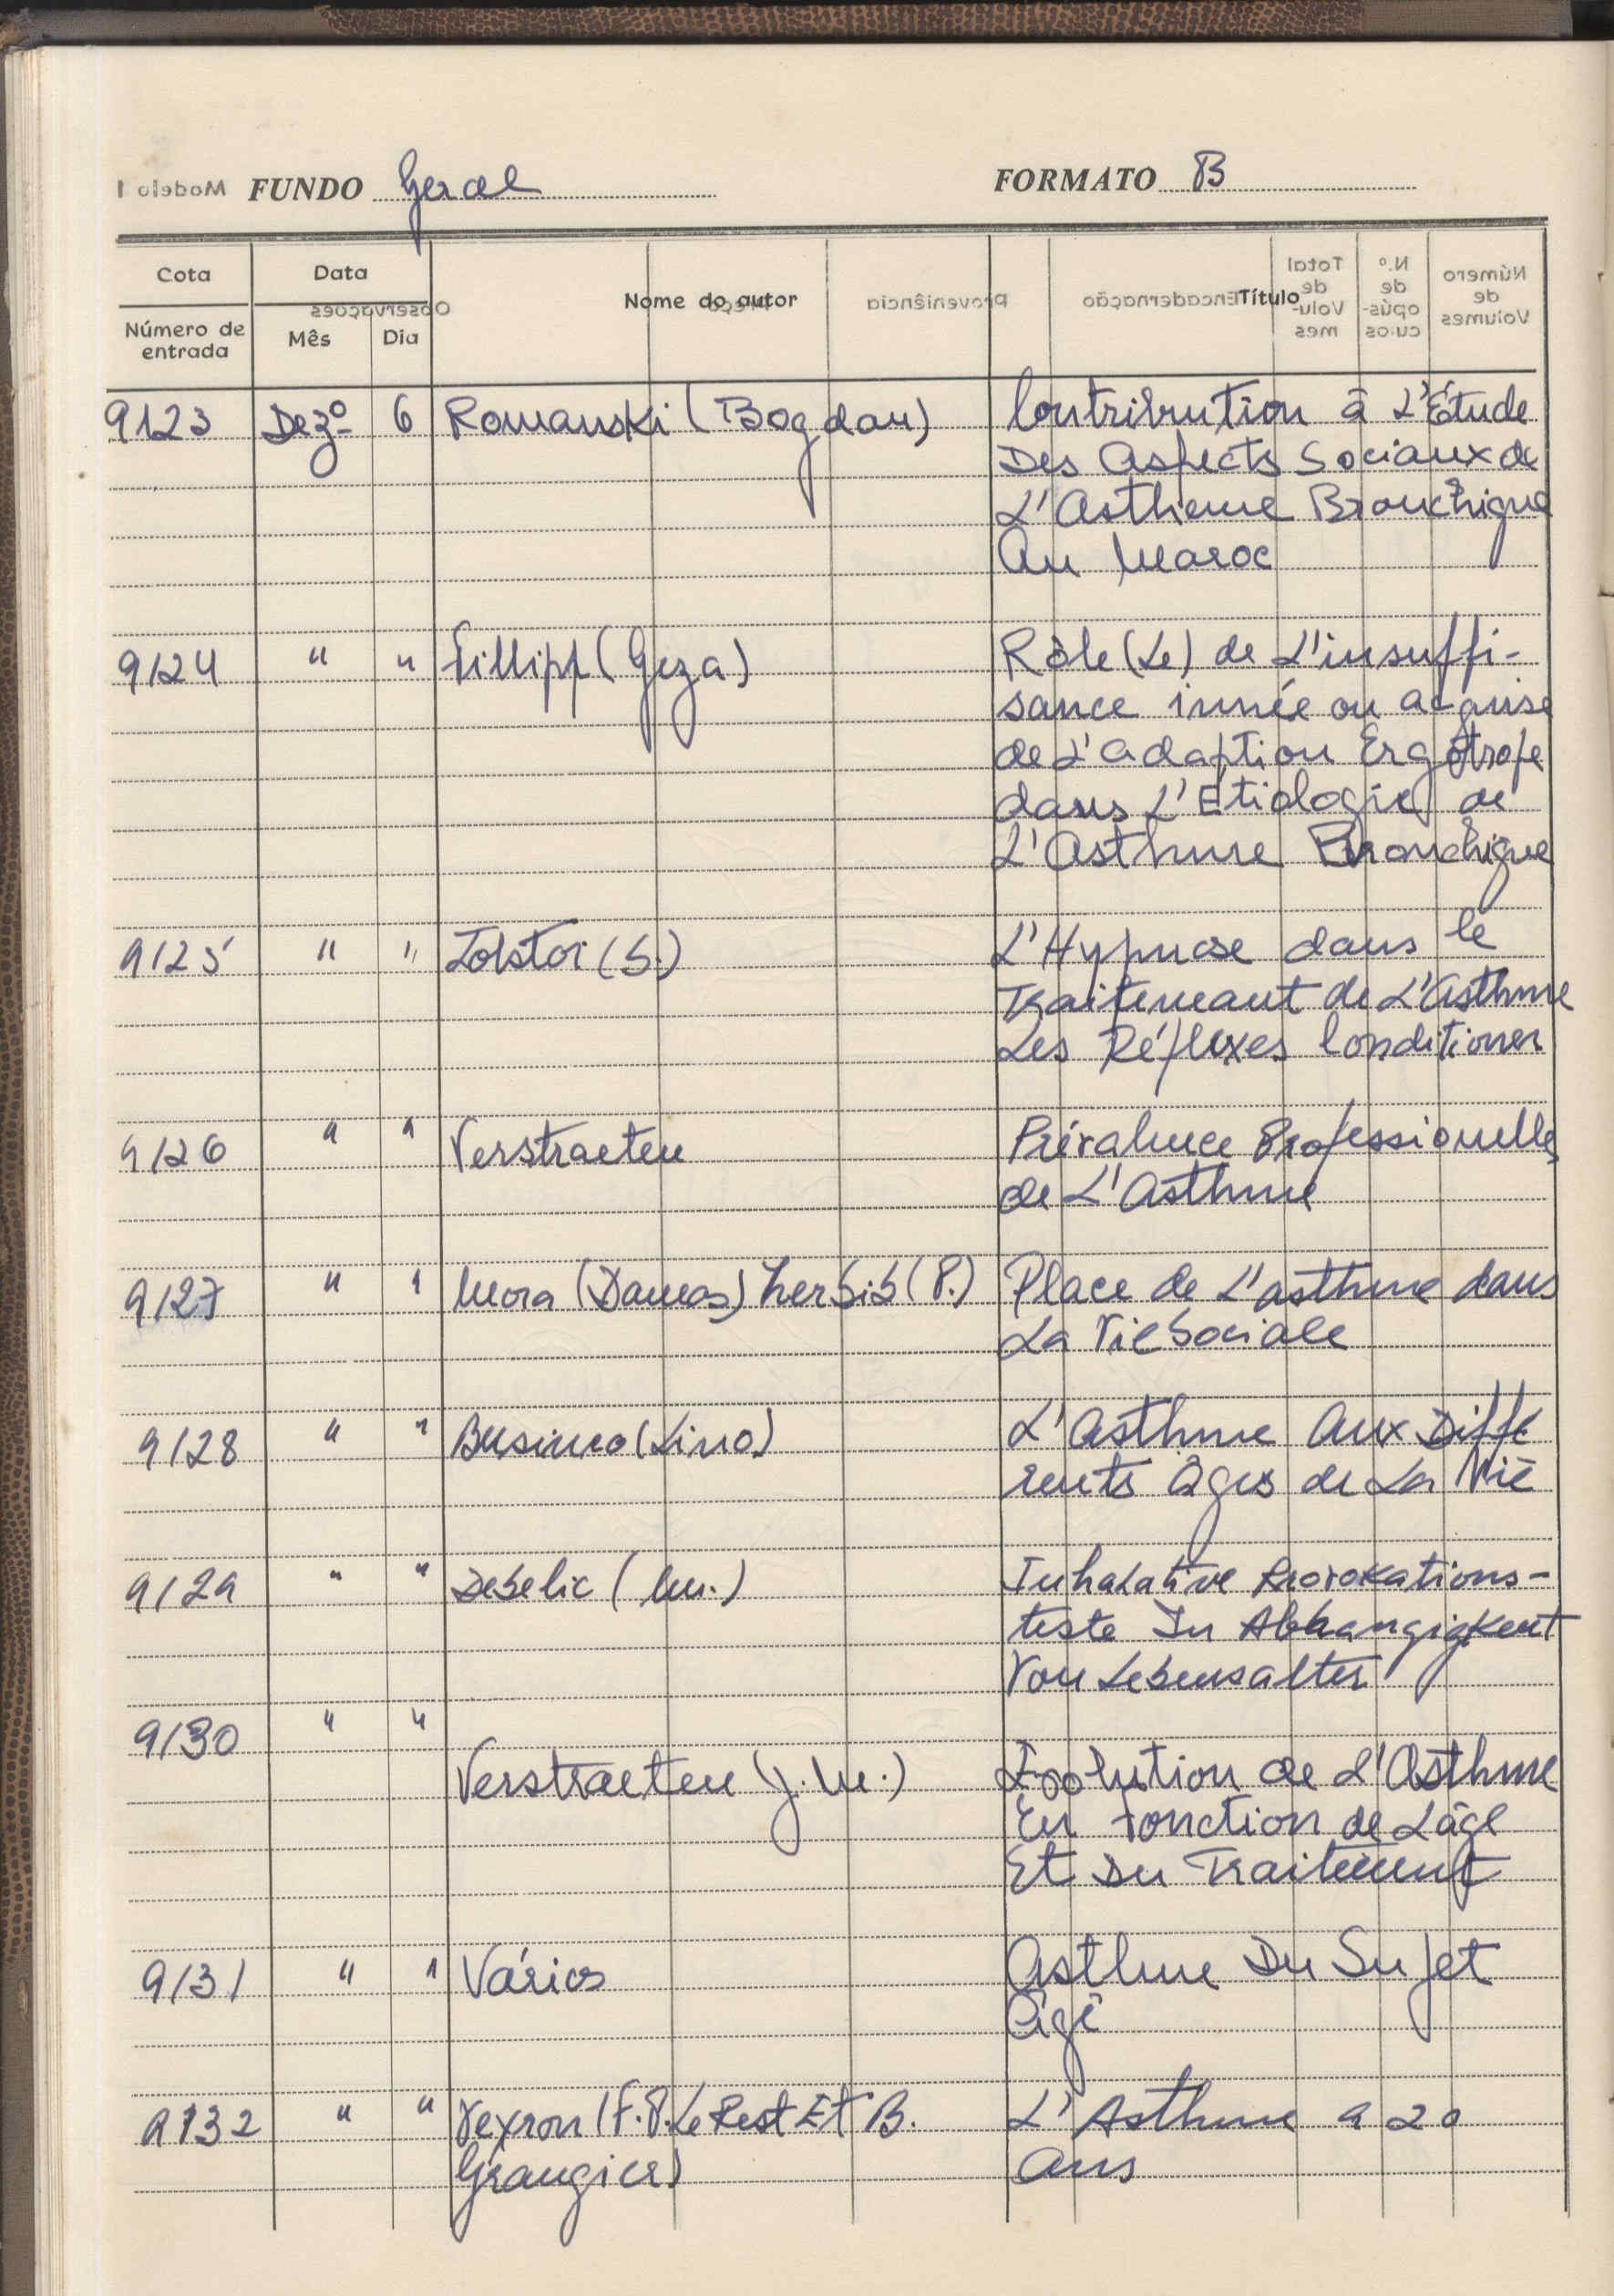 FUNDO Geral FORMATO B
Cota Data Nome do autor Título
Número de entrada Mês Dia
9123 Dezº 6 Romanski (Bogdan) Contribution à L'Étude
Des Aspects Sociaux de
L'Astheme Bronchique
Au Maroc
9124 " " Fillipp (Geza) Rôle (Le) de L'insuffi-
sance innée ou acquise
de L'adaption Ergotrope
dans L'Etiologie de
L'Asthme Bronchique
9125 " " Tolstoi (S.) L'Hypnose dans le
Traitemeant de L'Asthme
Les Réflexes Conditioner
9126 " " Verstraeten Prévalence Professionelle
de L'Asthme
9127 " " Mora (Damas) (P.) Place de L'asthme dans
La Vie Sociale
9128 " " Businco (Lino) L'Asthme Aux Diffé
rents Âges de La Vie
9129 " " Debelic (M.) Inhalative Provokations-
teste In Abhangigkeut
Von Lebensalter
9130 " "
Verstraeten (J. M.) Évolution de L'Asthme
En Fonction de Lâge
Et Du Traitement
9131 " " Vários Asthme Du Sujet
Âgé
9132 " " Veyron (F. P. Le Rest Et B. L'Asthme a 20
Grangier) Ans